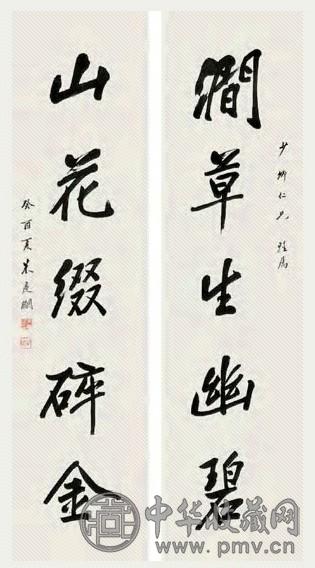 澗草生幽碧
少卿仁兄 雅属
山花缀碎金
癸酉夏朱虎𬀩
中华收藏网
www.pmv.cn